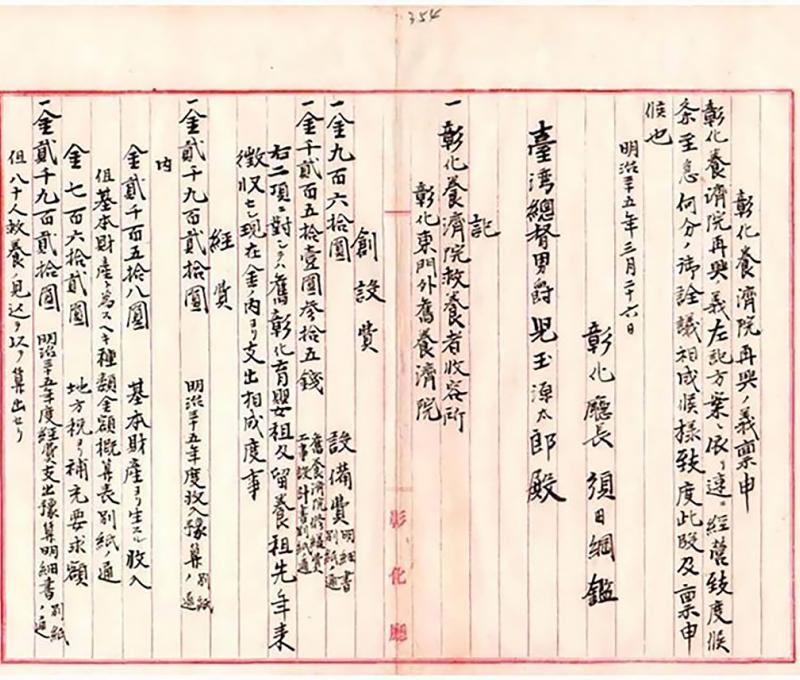 354
彰化養濟院再興ノ義稟申
彰化養濟院再興ノ義左記方案ニ依リ速ニ經營致度候
条至急何分ノ御詮議相成候様致度此段及稟申
候也
明治三十五年三月二十六日
彰化廳長 須田綱鑑
臺湾總督男爵 児玉源太郎殿
記
一 彰化養濟院救養者收容所
彰化東門外舊養濟院
彰化廳
創設費
一金九百六拾圓 設備費 明細書別紙ノ通
一金千貳百五拾壹圓参拾五錢 舊養濟院修繕費工事設計書別紙ノ通
右二項ニ對シテハ舊彰化育嬰租及留養租先年来
徴収セシ現在金ノ内ヨリ支出相成度事
經費
一金貳千九百貳拾圓 明治三十五年度收入豫算ノ別紙ノ通
内
金貳千百五拾八圓 基本財産ヨリ生スル收入
但基本財産ト為スヘキ種類金額概算表別紙ノ通
金七百六拾貳圓 地方税ヨリ補充要求額
一金貳千九百貳拾圓 明治三十五年度經費支出豫算明細書別紙ノ通
但八十人救養ノ見込ヲ以テ算出セリ